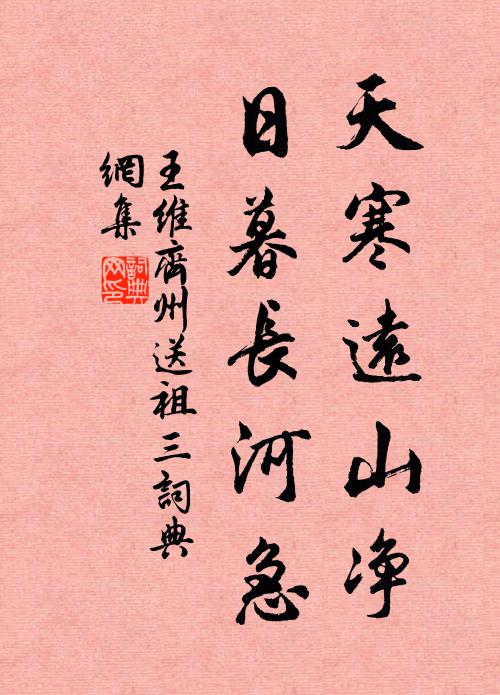 天寒遠山净
日暮長河急
王維齊州送祖三詞典
網集
詞典網印